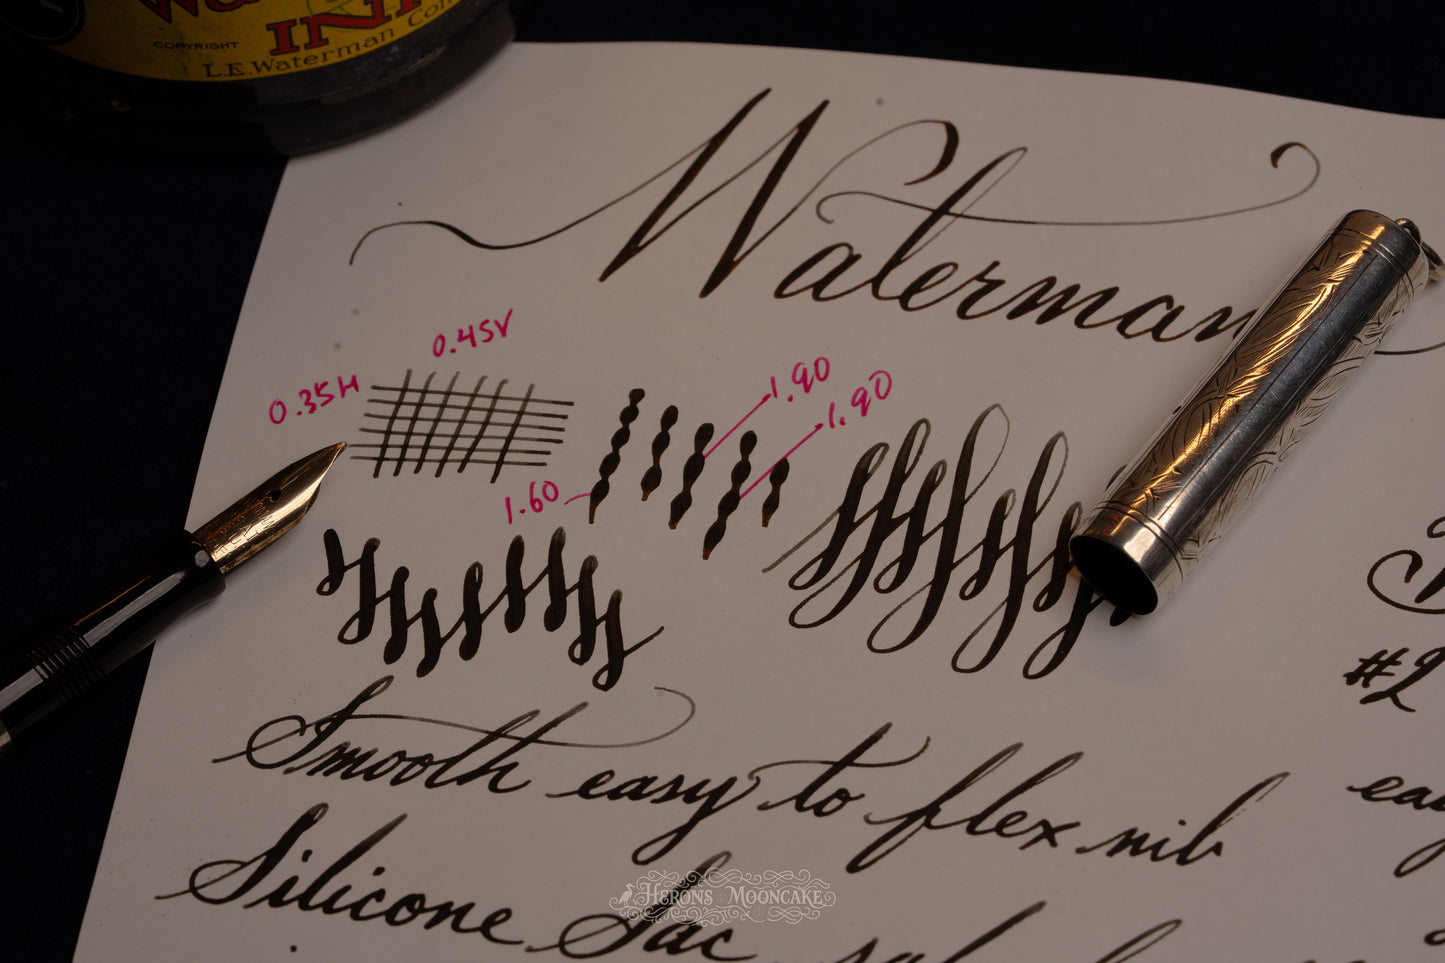 COPYRIGHT
INK
L.E. Waterman Com
Waterman
0.45V
0.35H
1.90
1.90
1.60
#2
Smooth easy to flex nib
eas
Silicone Sac
HERONS MOONCAKE